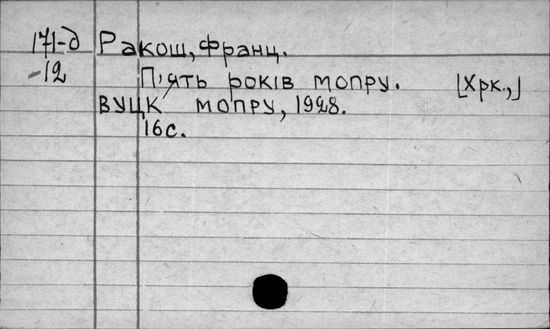 171-д Ракош, Франц.
-12 П'ять років мопру. [Хрк.,]
ВУЦК мопру, 1928.
16с.